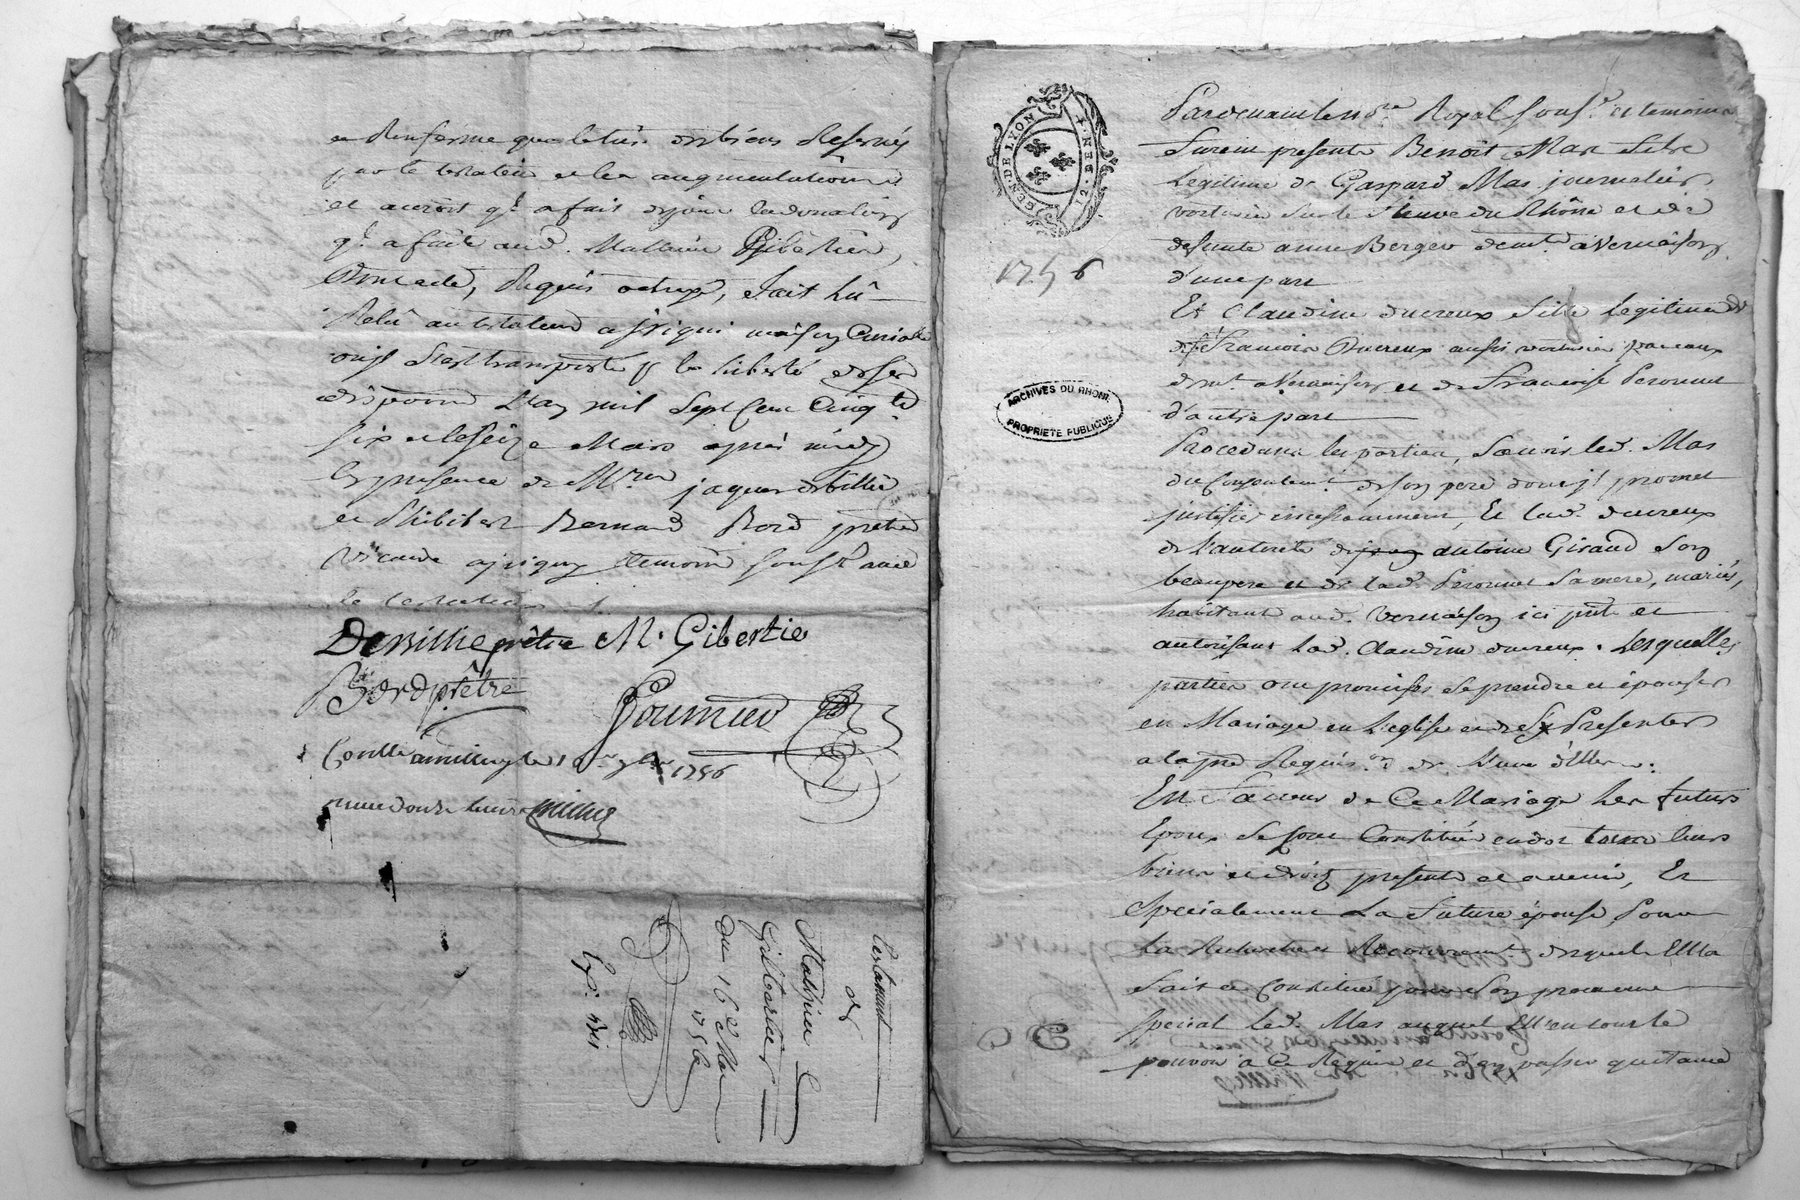 et Renferme que le tiers des biens Reservés
par le testateur et les augmentations
et accrois qt. a fait depuis la donation
qt. a faite aud. Mathieu Gibertier,
Dont acte, Requis octroyé, fait lû
Relû au testateur a jrigni maison Curialle
ou jl s'est transporté pr. la liberté de ses
dispositions L'an mil Sept Cent Cinqte.
six et le seize Mars après midy
En presence de Mres. jaques deville
et Bernard Bord prêtre
vicaire a jrigny temoins Sousst. avec
le testateur
Deville prêtre M. Gibertie
Bord prêtre
Fournier
1756
Testament
de
Mathieu
Gibertier
du 16e Mars
1756
Exp. Est
GEN. DE LYON
12. DEN. 4.
1756
ARCHIVES DU RHÔNE
PROPRIETE PUBLIQUE
Pardevant le nore. Royal Souse. et temoins
furent presents Benoit Mas fils
Legitime de Gaspard Mas journalier
voiturier sur le fleuve du Rhône et de
defunte anne Berger demt. a Vernaison
d'une part
Et Claudine ducreux fille Legitime de
deft François Ducreux aussi voiturier par eaux
demt. a Vernaison et de Françoise Peronnet
d'autre part
Procedants les parties, Scavoir led. Mas
du Consentemt. de son pere dont jl promet
justifier incessamment, Et lad. ducreux
de l'autorité de antoine Giraud Son
beaupere et de lad. Peronnet Sa mere, mariés,
habitants aud. Vernaison ici pnts et
autorisant lad. Claudine ducreux. Lesquelles
parties ont promises se prendre et épouser
en Mariage en L'eglise et de Se Presenter
a la pre Requison. de L'une d'Elles.
En faveur de Ce Mariage Les futurs
Epoux Se Sont Constitué en dot tous leurs
biens et droits presents et avenir, Et
Specialement La future épouse, Pour
La Recherche et Recouvremt. desquels Elle
fait et Constitue pour Son procureur
special led. Mas auquel Elle donne
pouvoir à Ce Requis et d'en passer quitance